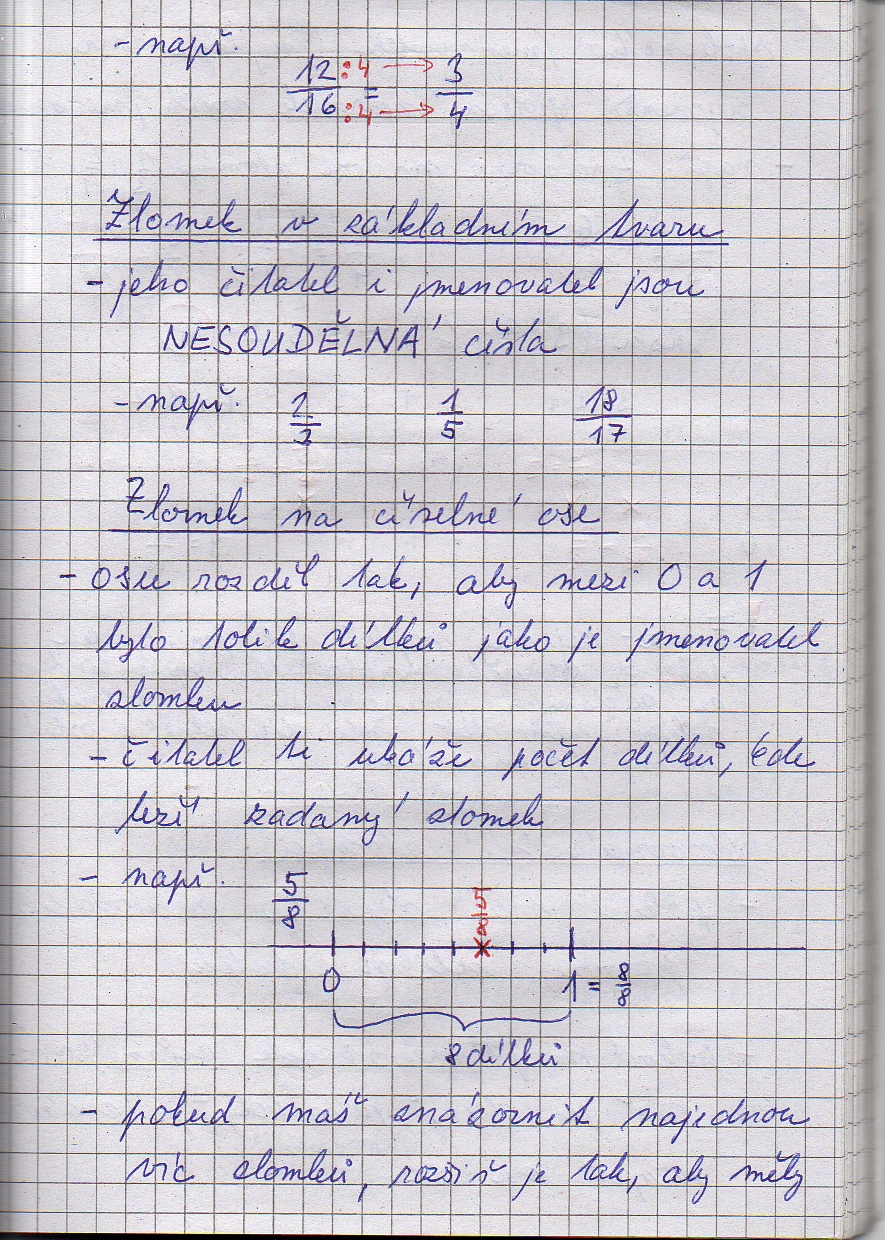 - např.
12:4 → 3
16:4 = → 4
Zlomek v základním tvaru
- jeho čitatel i jmenovatel jsou
NESOUDĚLNÁ čísla
- např. 2/3 1/5 18/17
Zlomek na číselné ose
- osu rozděl tak, aby mezi 0 a 1
bylo tolik dílků jako je jmenovatel
zlomku
- čitatel ti ukáže počet dílků, kde
leží zadaný zlomek
- např. 5/8
5/8
0 1 = 8/8
8 dílků
- pokud máš znázornit najednou
víc zlomků, rozšiř je tak, aby měly